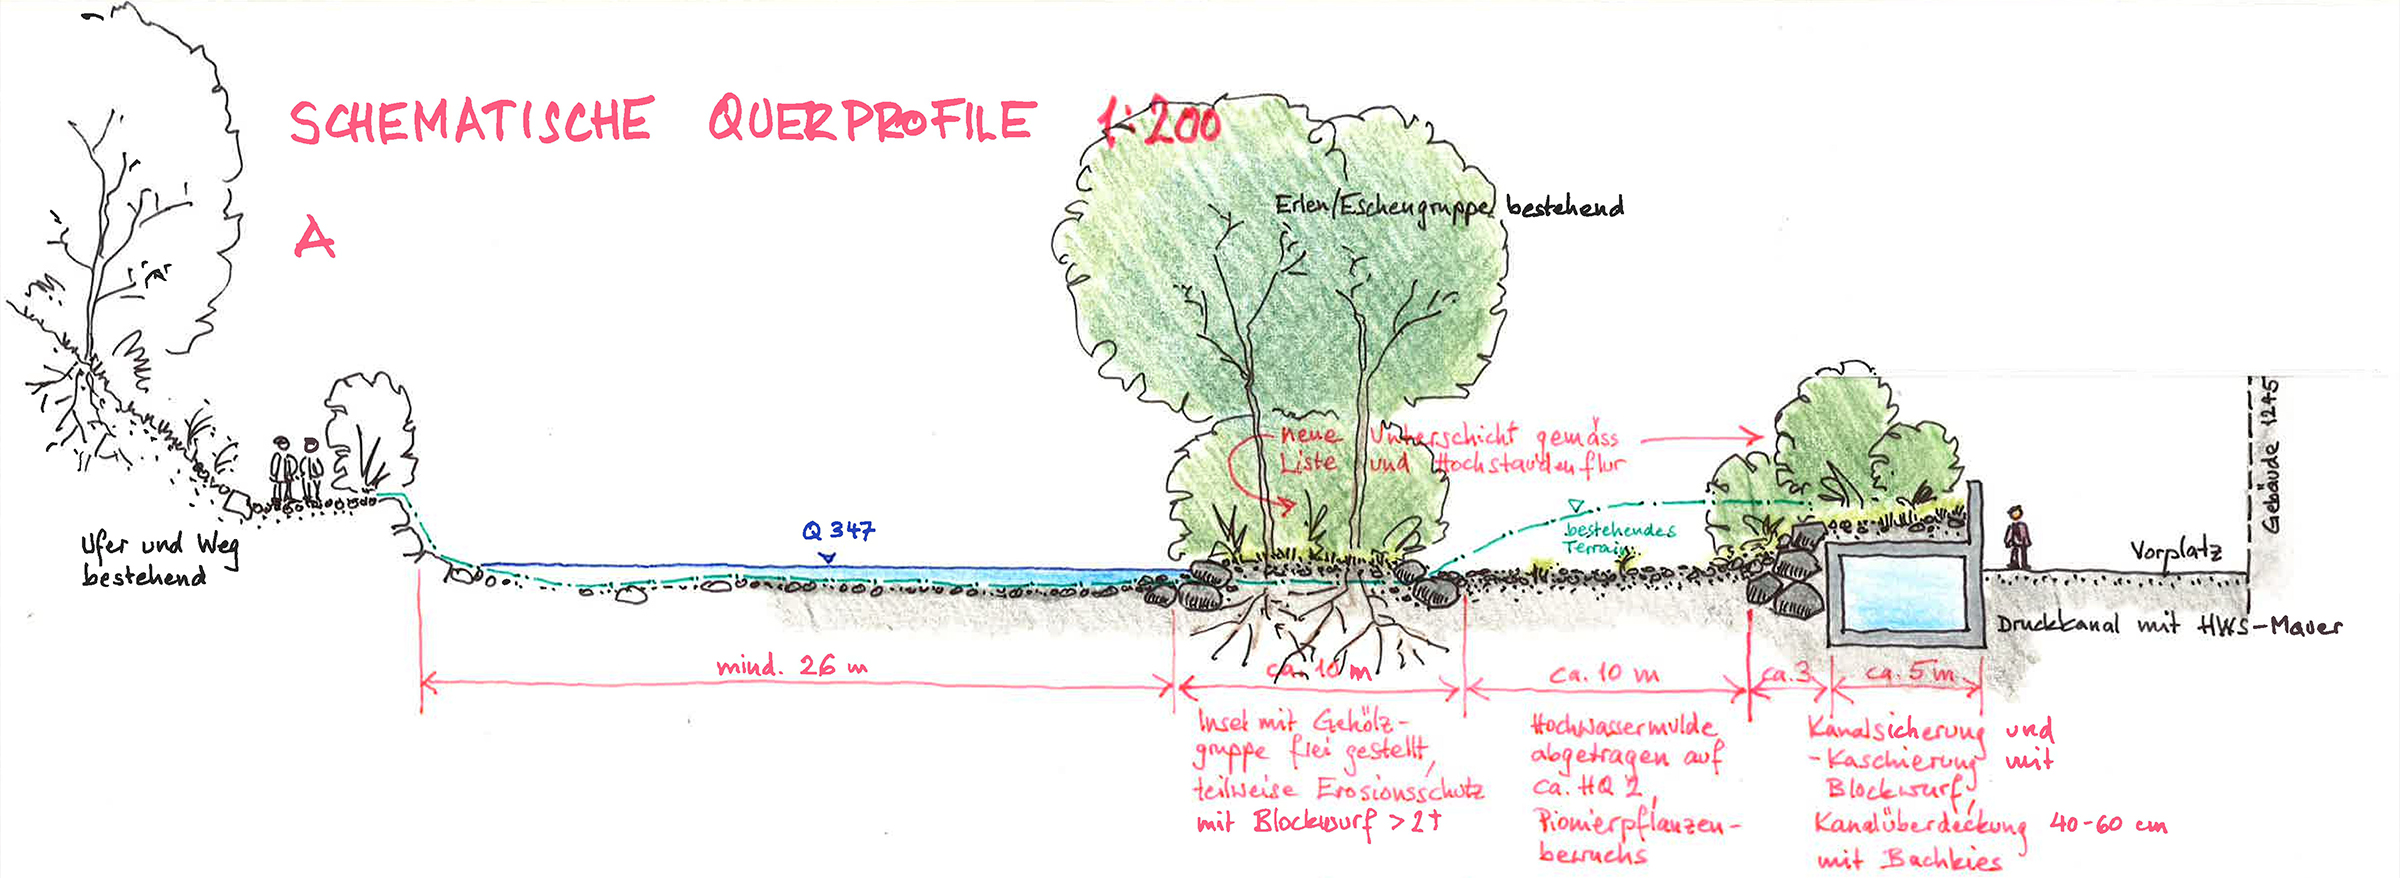 SCHEMATISCHE QUERPROFILE 1:200
A
Erlen/Eschengruppe bestehend
neue Unterschicht gemäss
Liste und Hochstaudenflur
Gebäude 1245
bestehendes
Terrain
Q 347
Ufer und Weg
bestehend
Vorplatz
Druckkanal mit HWS-Mauer
mind. 26 m
ca. 10 m
ca. 10 m
ca. 3
ca. 5 m
Insel mit Gehölz-
gruppe frei gestellt,
teilweise Erosionsschutz
mit Blockwurf > 2t
Hochwassermulde
abgetragen auf
ca. HQ 2,
Pionierpflanzen-
bewuchs
Kanalsicherung und
-Kaschierung mit
Blockwurf,
Kanalüberdeckung 40-60 cm
mit Bachkies